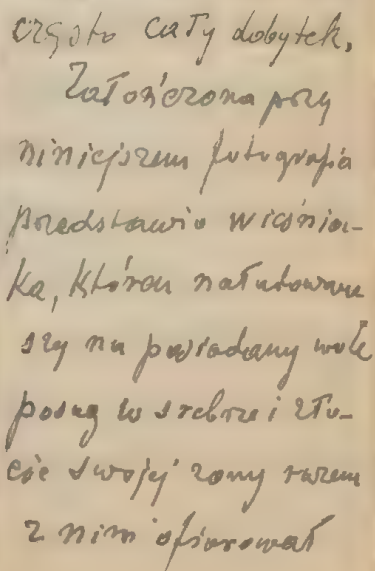 często cały dobytek.
Załończona przy
niniejszem fotografia
przedstawia wieśnia-
ka, któren naładowaw
szy na posiadany wóz
posag w srebrze i zło-
cie swojej żony razem
z nim ofiarował